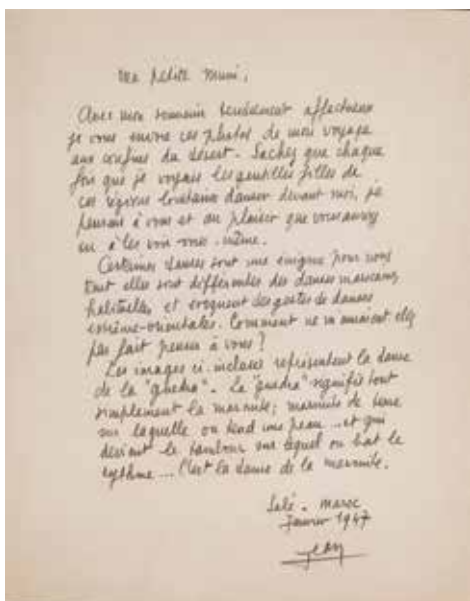 Ma petite Muni,
Avec mon souvenir affectueux
je vous envoie ces photos de mon voyage
aux confins du désert. Sachez que chaque
fois que je voyais les gentilles filles de
ces régions lointaines danser devant moi, je
pensais à vous et au plaisir que vous auriez
eu à les voir vous-même.
Certaines danses sont une énigme pour nous
tant elles sont différentes des danses marocaines
habituelles, et évoquent des gestes de danses
extrême-orientales. Comment ne m'auraient elles
pas fait penser à vous ?
Les images ci-incluses représentent la danse
de la "guedra". La "guedra" signifie tout
simplement la marmite; marmite de terre
sur laquelle on tend une peau... et qui
devient le tambour sur lequel on bat le
rythme... C'est la danse de la marmite.
Salé - Maroc
Janvier 1947
Jean